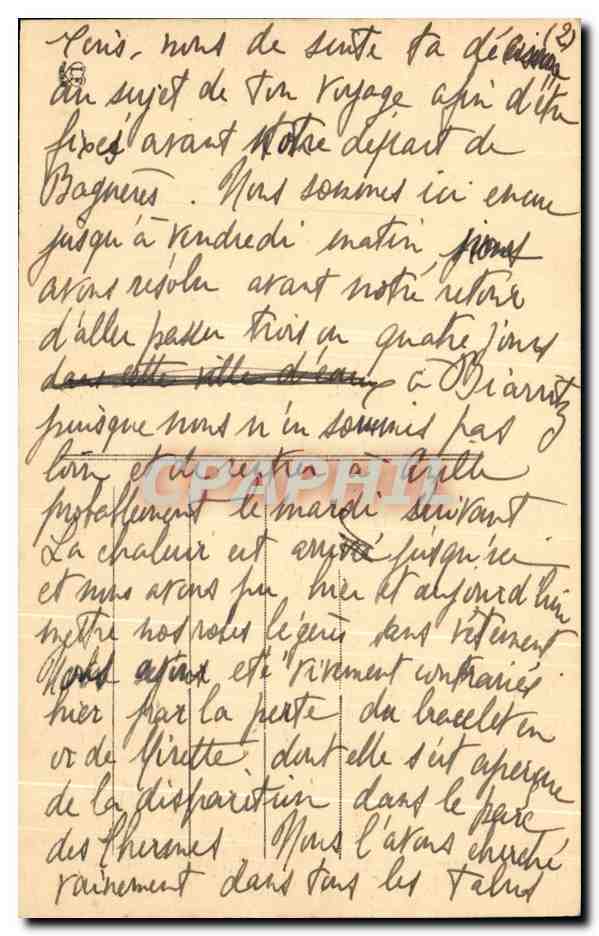 (2)
écris-nous de suite ta décision
au sujet de ton voyage afin d'être
fixés avant notre départ de
Bagnères. Nous sommes ici encore
jusqu'à vendredi matin, nous
avons résolu avant notre retour
d'aller passer trois ou quatre jours
dans cette ville d'eaux à Biarritz
puisque nous n'en sommes pas
loin et de rentrer à
probablement le mardi suivant
La chaleur est arrivé jusqu'ici
et nous avons pu hier et aujourd'hui
mettre nos robes légères sans vêtement
Nous avons été vivement contrariés
hier par la perte du bracelet en
or de Mirette dont elle s'est aperçue
de la disparition dans le parc
des Thermes. Nous l'avons cherché
vainement dans tous les talus
CPAPHIL